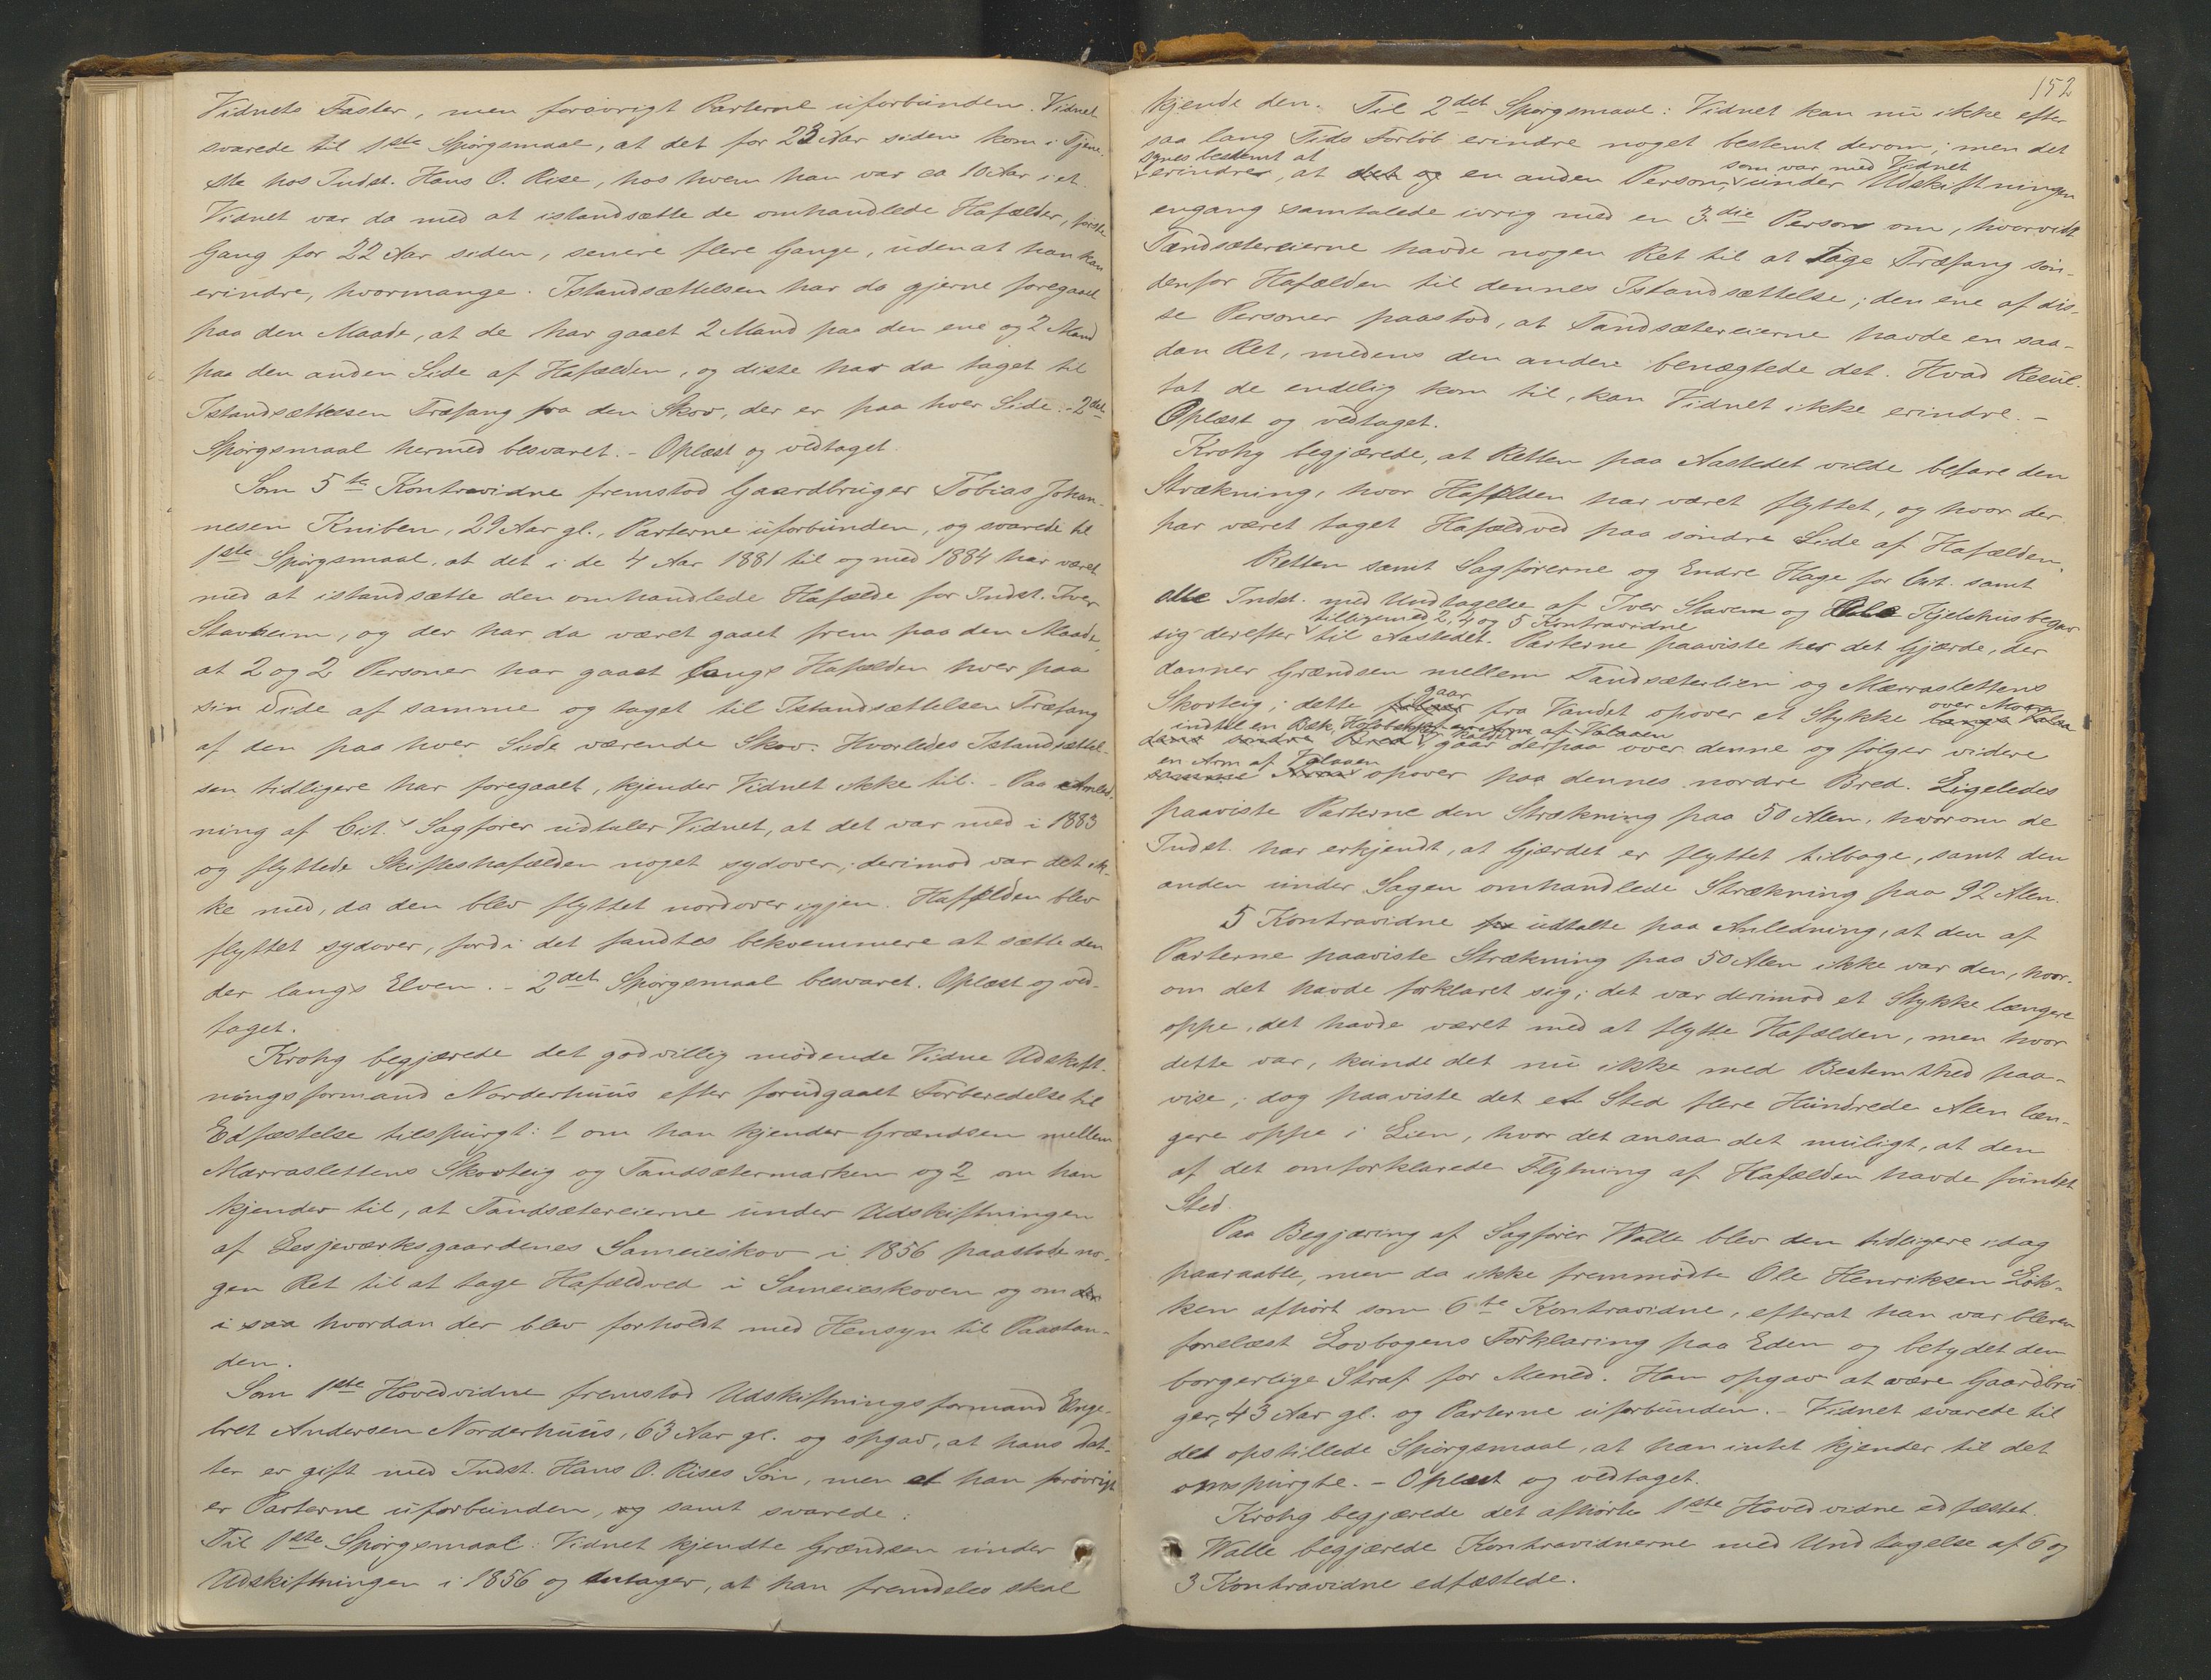 Vidnets Faster, men forøvrigt Parterne uforbunden. Vidnet
svarede til 1ste Spørgsmaal, at det for 23 Aar siden kom i Tjene-
ste hos Indst. Hans O. Rise, hos hvem han var ca 10 Aar i et.
Vidnet var da med at istandsætte de omhandlede Hafælder, første
Gang for 22 Aar siden, senere flere Gange, uden at han kan
erindre, hvormange. Istandsættelsen har da gjerne foregaaet
paa den Maade, at de har gaaet 2 Mand paa den ene og 2 Mand
paa den anden Side af Hafælden, og disse har da taget til
Istandsættelsen Træfang fra den Skov, der er paa hver Side. - 2det
Spørgsmaal hermed besvaret. - Oplæst og vedtaget.
Som 5te Kontravidne fremstod Gaardbruger Tobias Johan-
nesen Kniben, 29 Aar gl., Parterne uforbunden, og svarede til
1ste Spørgsmaal, at det i de 4 Aar 1881 til og med 1884 har været
med at istandsætte den omhandlede Hafælde for Indst. Iver
Stavheim, og der har da været gaaet frem paa den Maade,
at 2 og 2 Personer har gaaet langs Hafælden hver paa
sin Side af samme og taget til Istandsættelsen Træfang
af den paa hver Side værende Skov. Hvorledes Istandsættel-
sen tidligere har foregaaet, kjender Vidnet ikke til. - Paa Anled-
ning af Cit. Sagfører udtaler Vidnet, at det var med i 1883
og flyttede Skifteshafælden noget sydover; derimod var det ik-
ke med, da den blev flyttet nordover igjen. Hafælden blev
flyttet sydover, fordi det fandtes bekvemmere at sætte den
der langs Elven. - 2det Spørgsmaal besvaret. Oplæst og ved-
taget.
Krohg begjærede det godvillig mødende Vidne Udskift-
ningsformand Norderhuus efter forudgaaet Forberedelse til
Edfæstelse tilspurgt: 1 om han kjender Grændsen mellem
Mærraslettens Skovteig og Tandsætermarken og 2 om han
kjender til, at Tandsætereierne under Udskiftningen
af Lesjeværksgaardenes Sameieskov i 1856 paastode no-
gen Ret til at tage Hafældved i Sameieskoven og om
i saa hvordan der blev forholdt med Hensyn til Paastan-
den.
Som 1ste Hovedvidne fremstod Udskiftningsformand Enge-
bret Andersen Norderhuus, 63 Aar gl. og opgav, at hans Dat-
ter er gift med Indst. Hans O. Rises Søn, men at han forøvrigt
er Parterne uforbunden, og samt svarede:
Til 1ste Spørgsmaal: Vidnet kjendte Grændsen under
Udskiftningen i 1856 og antager, at han fremdeles skal
152
kjende den. Til 2det Spørgsmaal: Vidnet kan nu ikke efter
saa lang Tids Forløb erindre noget bestemt derom; men det
synes bestemt at som var med Vidnet
erindrer, at det og en anden Person, under Udskiftningen
engang samtalede ivrig med en 3die Person om, hvorvidt
Tandsætereierne havde nogen Ret til at tage Træfang søn-
denfor Hafælden til dennes Istandsættelse; den ene af dis-
se Personer paastod, at Tandsætereierne havde en saa-
dan Ret, medens den anden benægtede det. Hvad Resul-
tat de endelig kom til, kan Vidnet ikke erindre. -
Oplæst og vedtaget.
Krohg begjærede, at Retten paa Aastedet vilde befare den
Strækning, hvor Hafælden har været flyttet, og hvor der
har været taget Hafældved paa søndre Side af Hafælden.
Retten samt Sagførerne og Endre Hage for Cit. samt
alle Indst. med Undtagelse af Iver Stavem og Ole Kjelshus begav
tilligemed 2, 4 og 5 Kontravidne
sig derefter til Aastedet. Parterne paaviste her det Gjærde, der
danner Grændsen mellem Tandsæterlien og Mærraslettens
gaar over Moen
Skovteig; dette følger fra Vandet opover et Stykke langs Valaa
indtil en Bæk, kaldet en Arm af Valaaen
dens søndre Bred, gaar derpaa over denne og følger videre
en Arm af Valaaen
samme opover paa dennes nordre Bred. Ligeledes
paaviste Parterne den Strækning paa 50 Alen, hvorom de
Indst. har erkjendt, at Gjærdet er flyttet tilbage, samt den
anden under Sagen omhandlede Strækning paa 92 Alen.
5 Kontravidne udtalte paa Anledning, at den af
Parterne paaviste Strækning paa 50 Alen ikke var den, hvor-
om det havde forklaret sig; det var derimod et Stykke længere
oppe, det havde været med at flytte Hafælden, men hvor
dette var, kunde det nu ikke med Bestemthed paa-
vise; dog paaviste det et Sted flere Hundrede Alen læn-
gere oppe i Lien, hvor det ansaa det muligt, at den
af det omforklarede Flytning af Hafælden havde fundet
Sted.
Paa Begjæring af Sagfører Walle blev den tidligere idag
paaraabte, men da ikke fremmødte Ole Henriksen Løk-
ken afhørt som 6te Kontravidne, efterat han var bleven
forelæst Lovbogens Forklaring paa Eden og betydet den
borgerlige Straf for Mened. Han opgav at være Gaardbru-
ger, 43 Aar gl. og Parterne uforbunden. - Vidnet svarede til
det opstillede Spørgsmaal, at han intet kjender til det
omspurgte. - Oplæst og vedtaget.
Krohg begjærede det afhørte 1ste Hovedvidne edfæstet.
Walle begjærede Kontravidnerne med Undtagelse af 6 og
3 Kontravidne edfæstede.